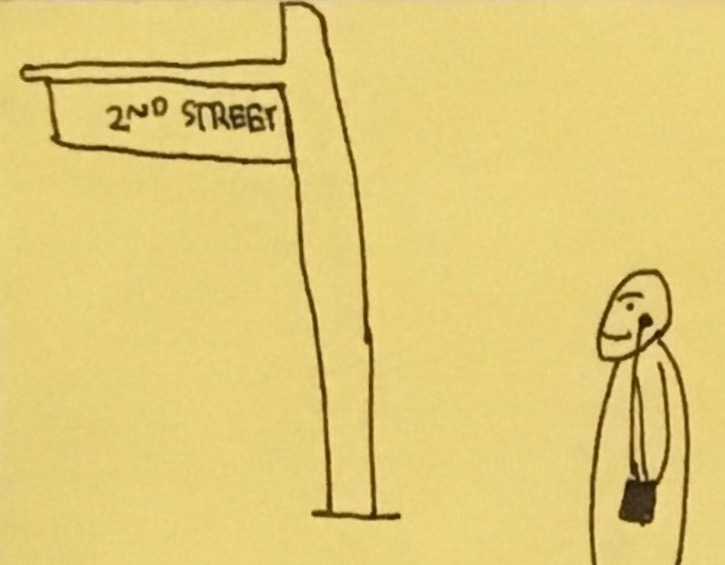 2ND STREET